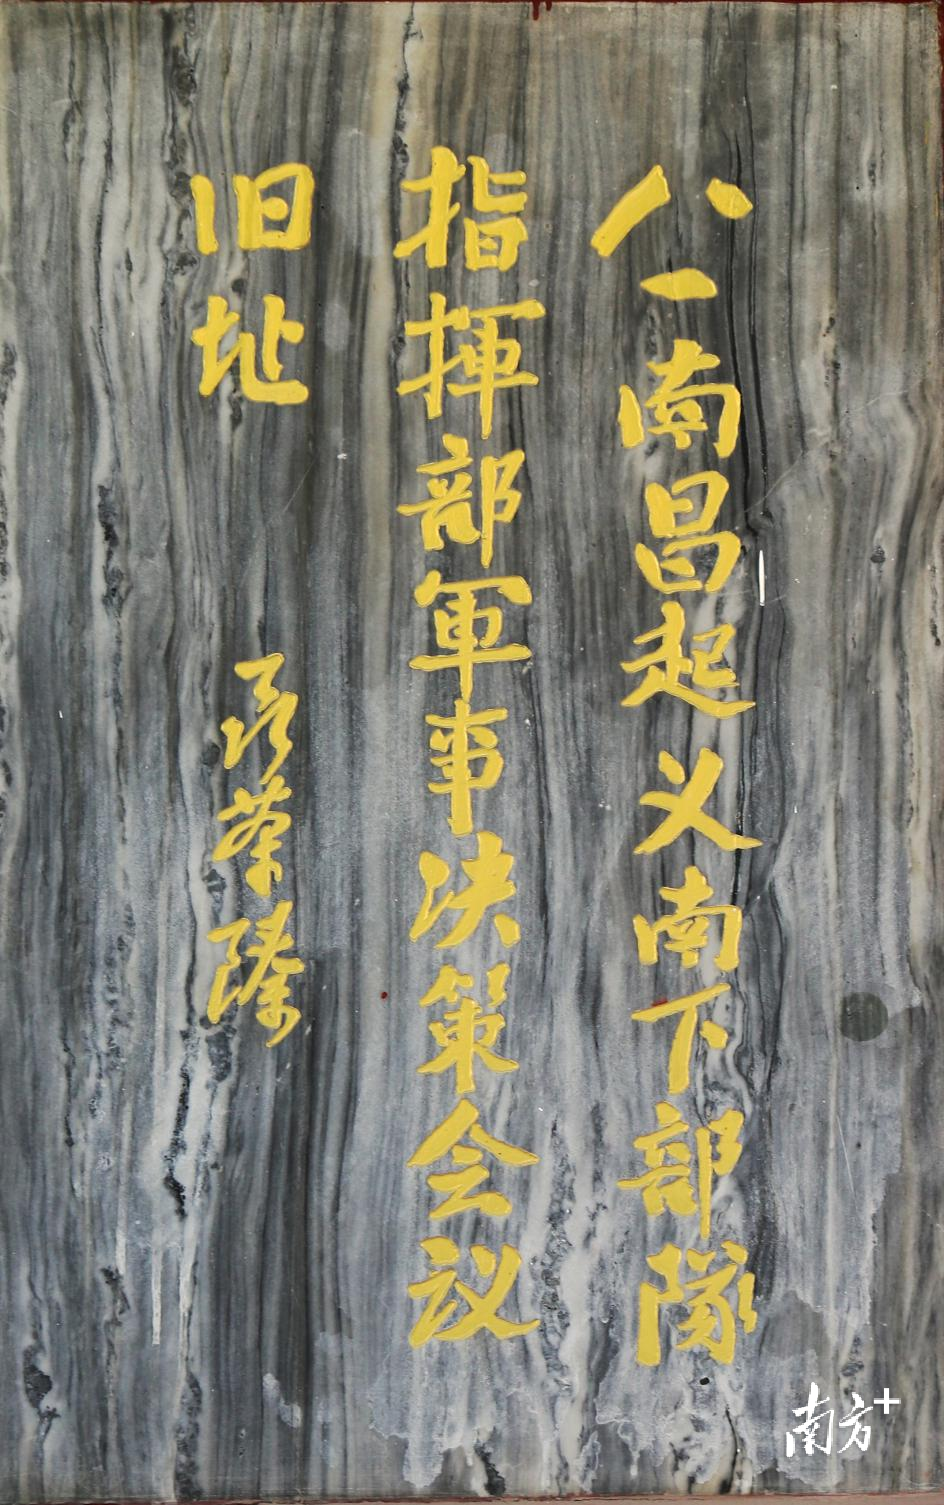 八一南昌起义南下部隊
指揮部軍事决策会议
旧址
聂荣臻
南方+